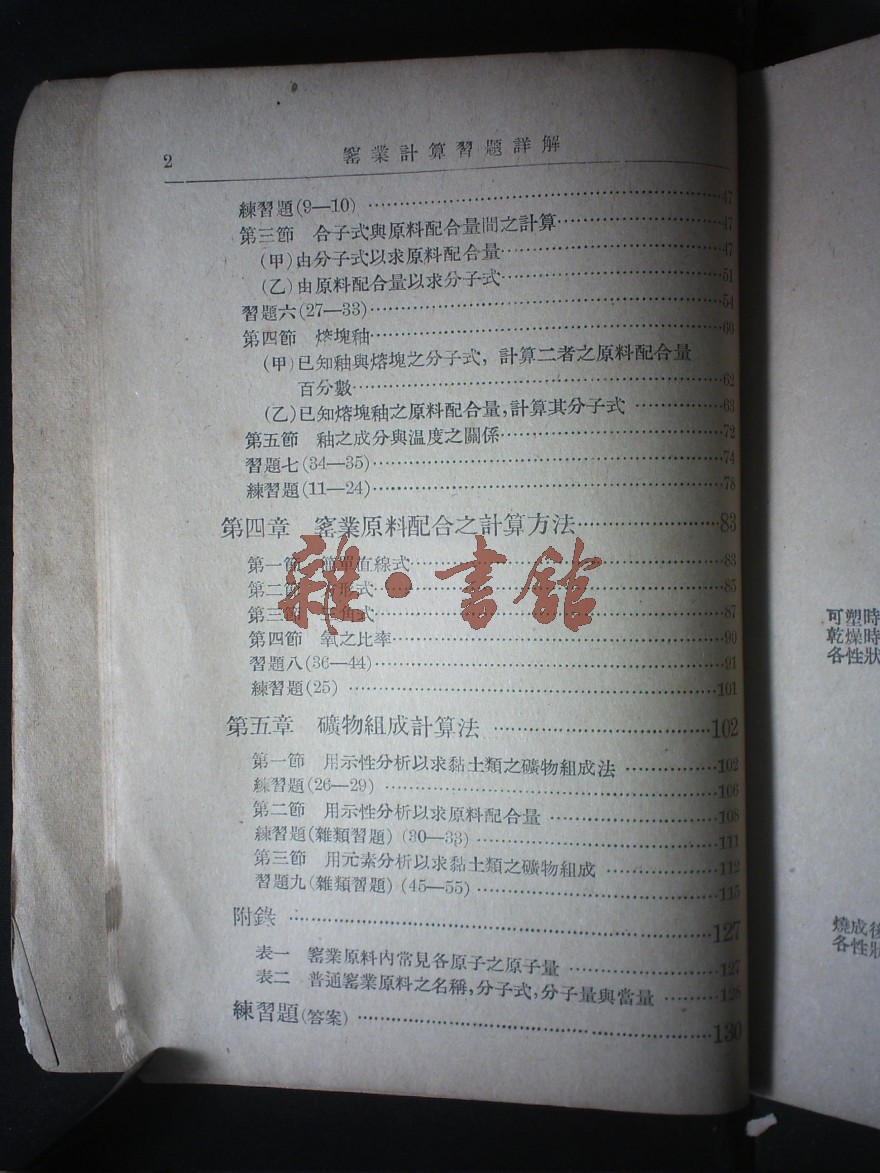 2
窰業計算習題詳解
練習題(9—10) ……47
第三節 合子式與原料配合量間之計算……47
(甲)由分子式以求原料配合量……47
(乙)由原料配合量以求分子式……51
習題六(27—33)……54
第四節 熔塊釉……60
(甲)已知釉與熔塊之分子式, 計算二者之原料配合量
百分數……62
(乙)已知熔塊釉之原料配合量,計算其分子式 ……63
第五節 釉之成分與温度之關係……72
習題七(34—35)……74
練習題(11—24)……78
第四章 窰業原料配合之計算方法……83
第一節 簡單直線式……83
第二節 形式……85
第三節 三角式……87
第四節 氧之比率……90
習題八(36—44)……91
練習題(25) ……101
第五章 礦物組成計算法 ……102
第一節 用示性分析以求黏土類之礦物組成法 ……102
練習題(26—29) ……106
第二節 用示性分析以求原料配合量 ……108
練習題(雜類習題) (30—33) ……111
第三節 用元素分析以求黏土類之礦物組成 ……112
習題九(雜類習題) (45—55) ……115
附錄 ……127
表一 窰業原料內常見各原子之原子量 ……127
表二 普通窰業原料之名稱,分子式,分子量與當量 ……128
練習題(答案) ……130
雜·書館
可塑時
乾燥時
各性狀
燒成後
各性狀